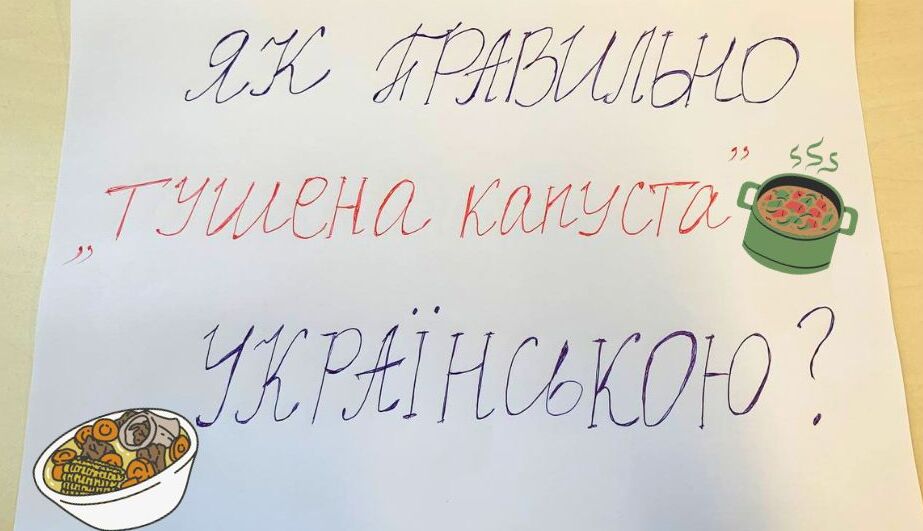 ЯК ПРАВИЛЬНО
„ТУШЕНА КАПУСТА”
УКРАЇНСЬКОЮ?